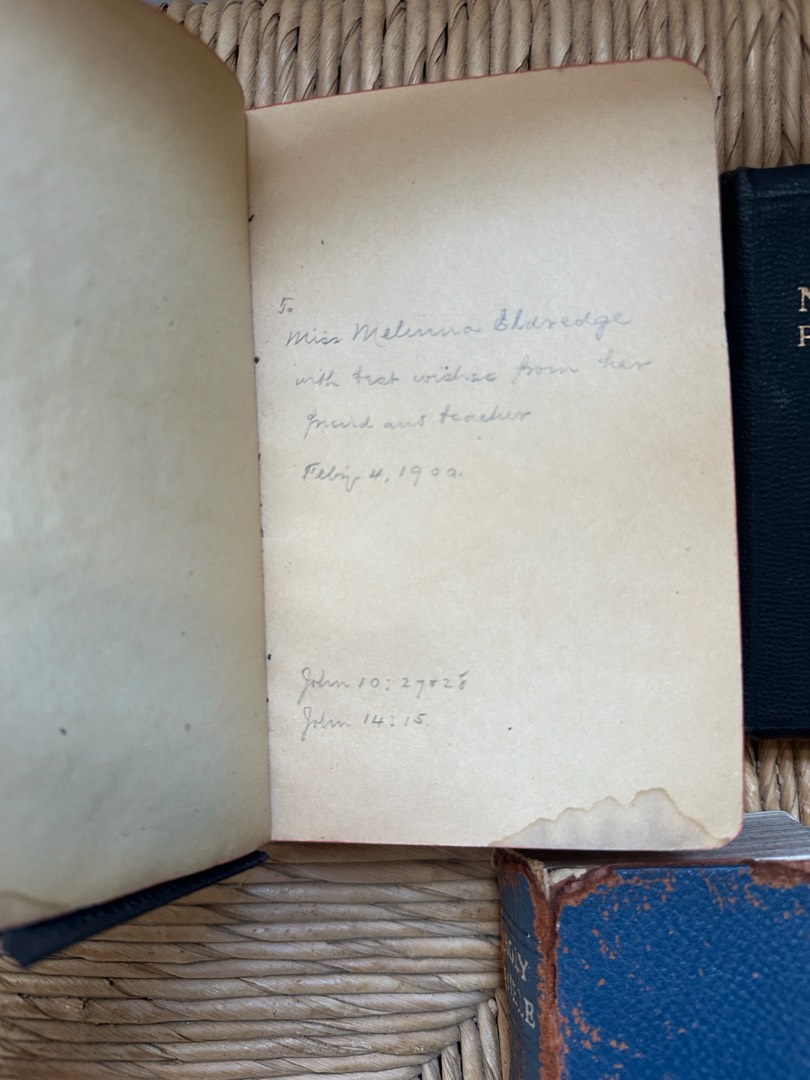 To
Miss Melinna Eldredge
with best wishes from her
friend and teacher
Feb'y 4, 1900.
John 10:27&28
John 14:15.
N